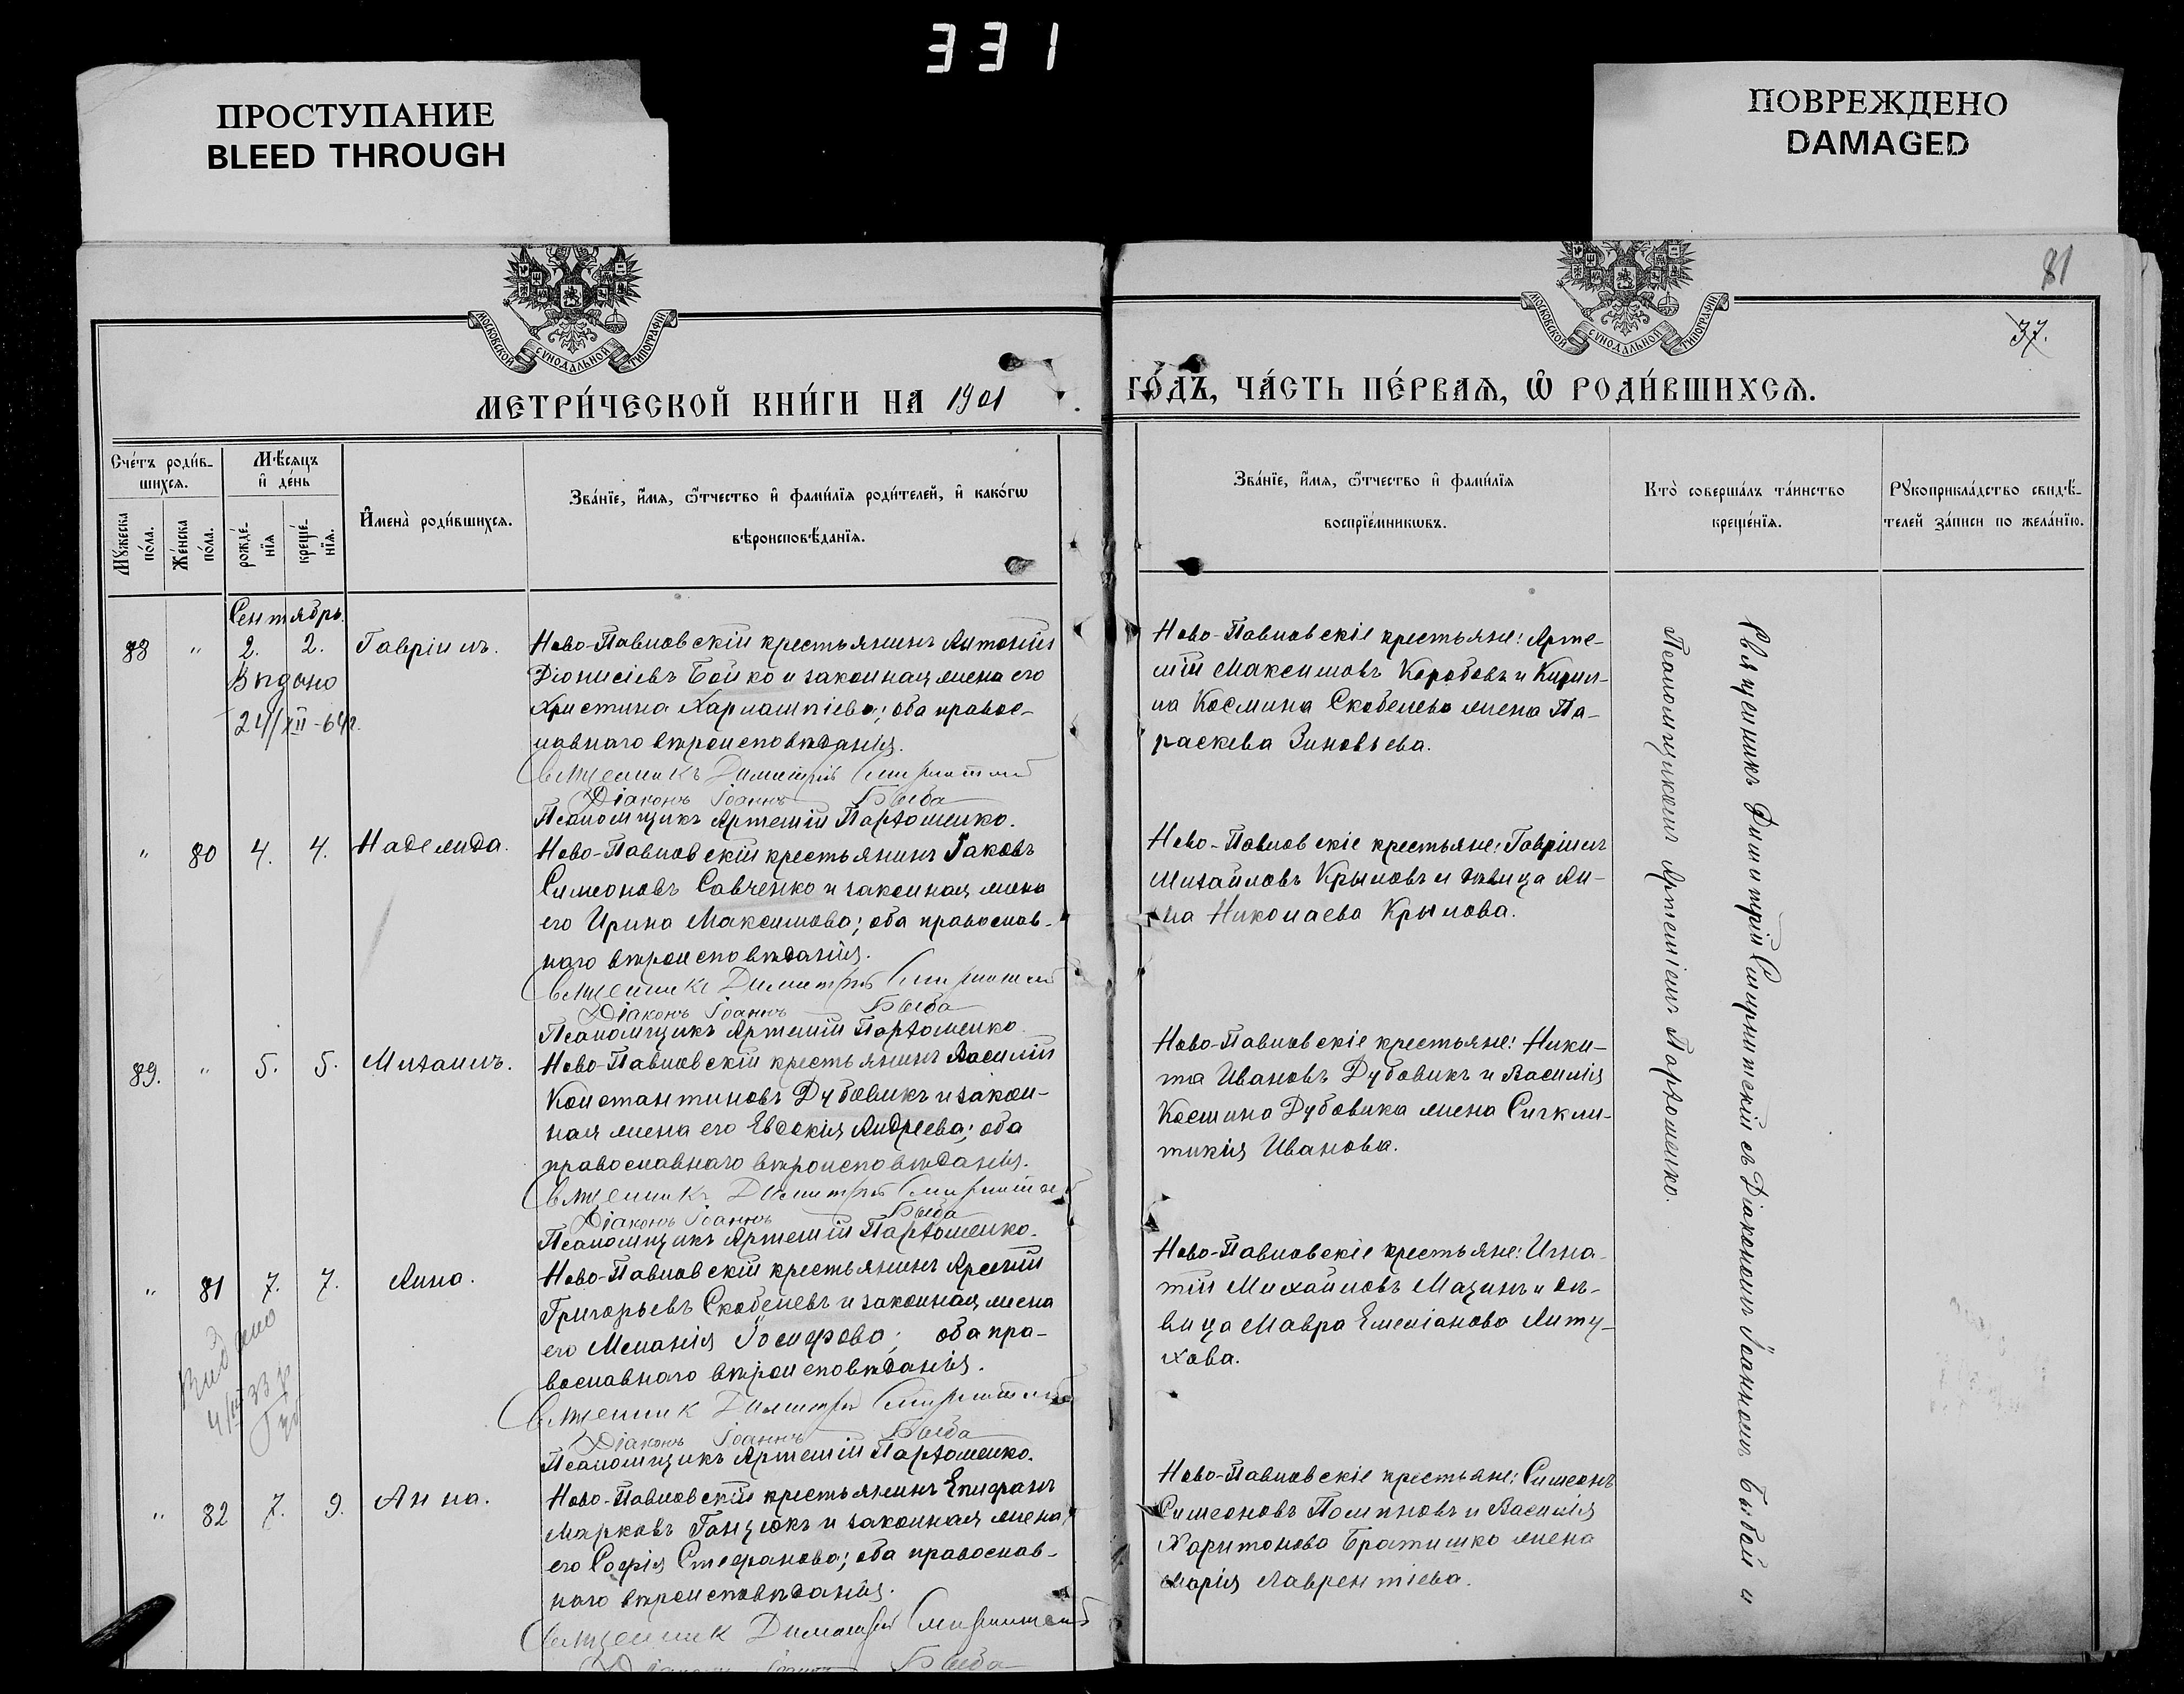 331
ПРОСТУПАНИЕ
BLEED THROUGH
ПОВРЕЖДЕНО
DAMAGED
МОСКОВСКОЙ СУНОДАЛЬНОЙ ТИПОГРАФІИ
МОСКОВСКОЙ СУНОДАЛЬНОЙ ТИПОГРАФІИ
81
37.
МЕТРИ́ЧЕСКОЙ КНИ́ГИ НА 1901
ГО́ДЪ, ЧА́СТЬ ПЕ́РВАЯ, Ѡ РОДИ́ВШИХСЯ.
Сче́тъ роди́в-
шихся.
Мꙋ́жеска по́ла.
Же́нска по́ла.
Мѣ́сяцъ
и҆ де́нь
рожде́-
нїя
креще́-
нїя.
И҆мена̀ роди́вшихся.
Зва́нїе, и҆́мя, ѻ҆́тчество и҆ фами́лїя роди́телей, и҆ како́гѡ
вѣроисповѣ́данїя.
Зва́нїе, и҆́мя, ѻ҆́тчество и҆ фами́лїя
воспрїе́мникѡвъ.
Кто̀ соверша́лъ та́инство
креще́нїя.
Рꙋкоприкла́дство свидѣ́-
телей за́писи по жела́нїю.
Сентябрь.
88 " 2. 2. Гавріилъ.
Выдано
24/XII-64г.
Ново-Павловскій крестьянинъ Антоній
Діонисіевъ Бойко и законная жена его
Христина Харлампіева; оба правос-
лавнаго вѣроисповѣданія.
Священникъ Димитрій
Діаконъ Іоаннъ Быба
Псаломщикъ Артемій Пархоменко.
Ново-Павловскіе крестьяне: Арте-
мій Максимовъ Коробовъ и Кирил-
ла Космина Скобелева жена Па-
раскева Зиновьева.
" 80 4. 4. Надежда.
Ново-Павловскій крестьянинъ Іаковъ
Симеоновъ Савченко и законная жена
его Ирина Максимова; оба православ-
наго вѣроисповѣданія.
Священникъ Димитрій
Діаконъ Іоаннъ Быба
Псаломщикъ Артемій Пархоменко.
Ново-Павловскіе крестьяне: Гавріилъ
Михайловъ Крыловъ и дѣвица Ан-
на Николаева Крылова.
89. " 5. 5. Михаилъ.
Ново-Павловскій крестьянинъ Василій
Константиновъ Дубовикъ и закон-
ная жена его Евдокія Андреева; оба
православнаго вѣроисповѣданія.
Священникъ Димитрій
Діаконъ Іоаннъ Быба
Псаломщикъ Артемій Пархоменко.
Ново-Павловскіе крестьяне: Ники-
та Ивановъ Дубовикъ и Василія
Космина Дубовика жена Сигкли-
тикія Иванова.
" 81 7. 7. Анна.
Видано
4/III 33 р
Ново-Павловскій крестьянинъ Арсеній
Григорьевъ Скобелевъ и законная жена
его Меланія Іосифова; оба пра-
вославнаго вѣроисповѣданія.
Священник Димитрій
Діаконъ Іоаннъ Быба
Псаломщикъ Артемій Пархоменко.
Ново-Павловскіе крестьяне: Игна-
тій Михайловъ Мазинъ и дѣ-
вица Мавра Емеліанова Литу-
хова.
" 82 7. 9. Анна.
Ново-Павловскій крестьянинъ Епифанъ
Марковъ Ганзюкъ и законная жена
его Софія Стефанова; оба православ-
наго вѣроисповѣданія.
Священник Димитрій
Діаконъ Іоаннъ Быба
Ново-Павловскіе крестьяне: Симеонъ
Симеоновъ и Василія
Харитонова Братишко жена
Марія Лаврентіева.
Священникъ Димитрій с Діакономъ Іоанномъ Быбой и
Псаломщикомъ Артеміемъ Пархоменко.